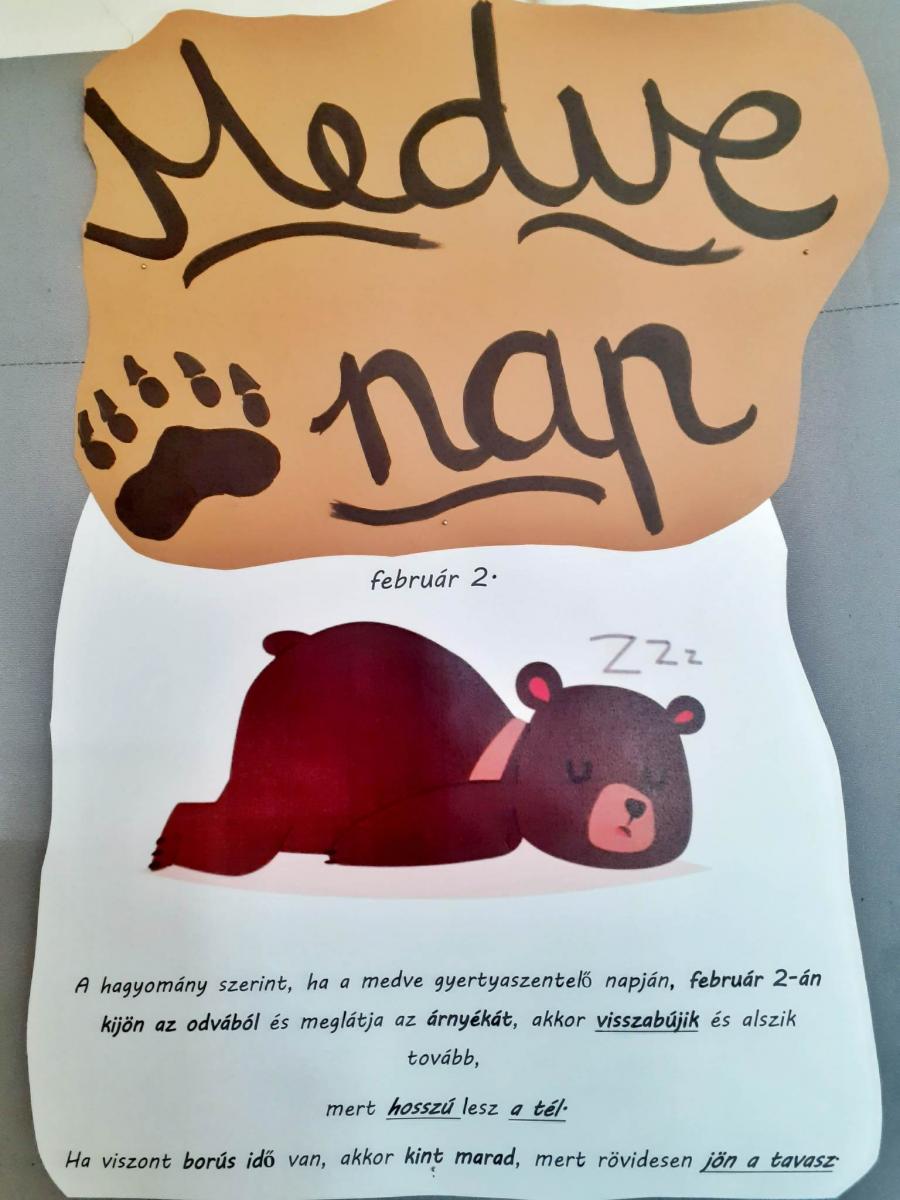 Medve
nap
február 2.
Z Z z
A hagyomány szerint, ha a medve gyertyaszentelő napján, február 2-án
kijön az odvából és meglátja az árnyékát, akkor visszabújik és alszik
tovább,
mert hosszú lesz a tél.
Ha viszont borús idő van, akkor kint marad, mert rövidesen jön a tavasz.